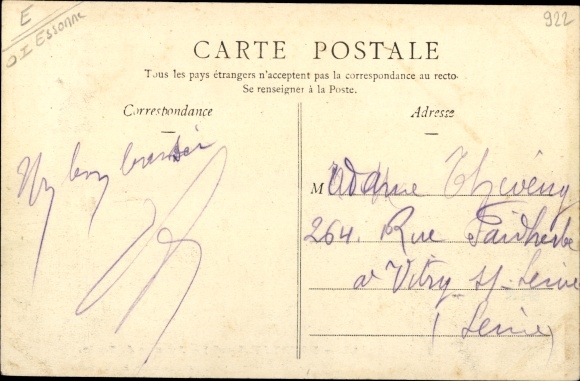 E
Essonne
922
CARTE POSTALE
Tous les pays étrangers n'acceptent pas la correspondance au recto.
Se renseigner à la Poste.
Correspondance
Adresse
Un bon
Madame Thévény
264. Rue Faidherbe
à Vitry s/-Seine
(Seine)